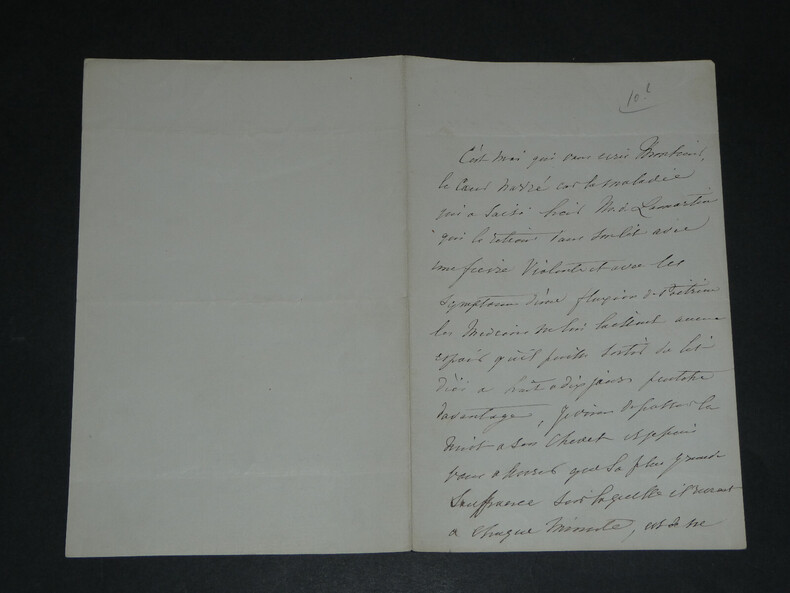 10 f
C'est moi qui vous écris Monsieur,
le cœur navré car la maladie
qui a saisi hier Mr de Lamartine
qui le retient dans son lit avec
une fievre violente et avec les
symptomes d'une fluxion de Poitrine
les Medecins ne lui laissent aucun
espoir qu'il puisse sortir du lit
d'ici a huit a dix jours peutetre
davantage, je viens de passer la
nuit a son chevet et je puis
vous assurer que sa plus grande
souffrance sur laquelle il revient
a chaque minute, est de ne